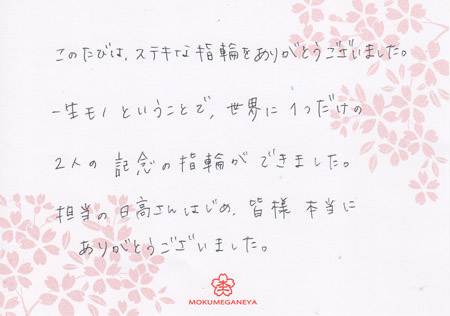 このたびは、ステキな指輪をありがとうございました。
一生モノということで、世界に1つだけの
2人の記念の指輪ができました。
担当の日高さんはじめ、皆様本当に
ありがとうございました。
MOKUMEGANEYA